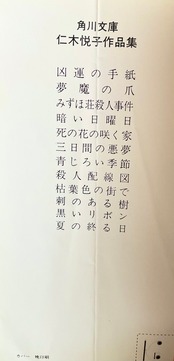 角川文庫
仁木悦子作品集
凶運の手紙
夢魔の爪
みずほ荘殺人事件
暗い日曜日
死の花の咲く家
三日間の悪夢
青じろい季節
殺人配線図
枯葉色の街で
刺のある樹
黒いリボン
夏の終る日
カバー